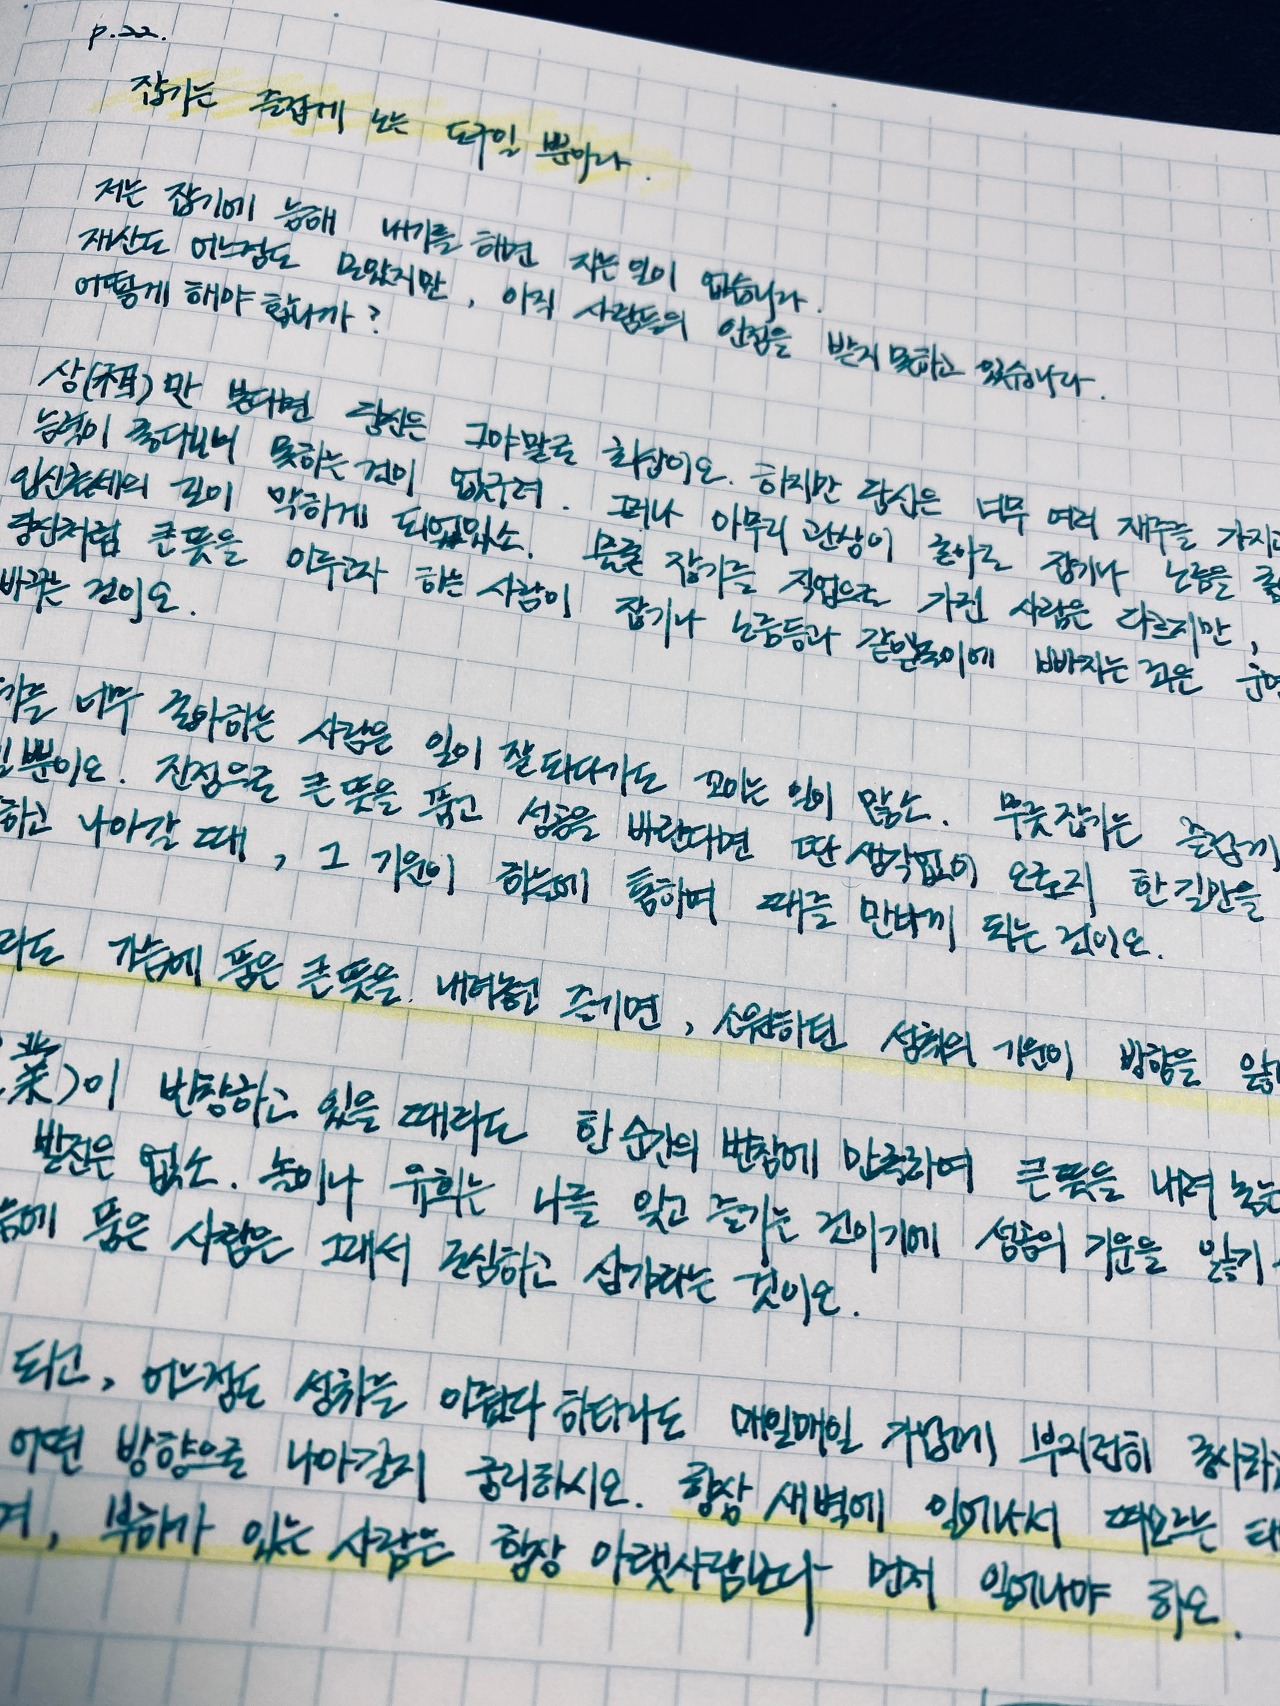 p.22.
잡기는 즐겁게 노는 도구일 뿐이다.
저는 잡기에 능해 내기를 하면 지는 일이 없습니다.
재산도 어느정도 모았지만, 아직 사람들의 인정을 받지 못하고 있습니다.
어떻게 해야 합니까?
상(相)만 본다면 당신은 그야말로 최상이오. 하지만 당신은 너무 여러 재주를 가지고
능력이 좋다보니 못하는 것이 없구려. 그러나 아무리 관상이 좋아도 잡기나 노름을
입신출세의 길이 막하게 되었있소. 물론 잡기를 직업으로 가진 사람은 다르지만,
당신처럼 큰 뜻을 이루고자 하는 사람이 잡기나 노름등과 같은 놀이에 빠지는 것은
바꾸는 것이오.
너무 좋아하는 사람은 일이 잘 되다가도 꼬이는 일이 많소. 무릇 잡기는 즐겁게
뿐이오. 진정으로 큰 뜻을 품고 성공을 바란다면 딴 생각없이 오로지 한 길만을
하고 나아갈 때, 그 기원이 하늘에 통하며 때를 만나게 되는 것이오.
라도 가슴에 품은 큰 뜻을 내려놓고 즐기면, 소원하던 성취의 기원이 방향을
業)이 번창하고 있을 때라도 한 순간의 번창에 만족하여 큰 뜻을 내려 놓는
발전은 없소. 놀이나 유희는 나를 잊고 즐기는 것이기에 성공의 기운을 잃기
품은 사람은 그래서 근심하고 삼가라는 것이오.
되고, 어느정도 성취를 이뤘다 하더라도 매일매일 가업에 부지런히 종사하
어떤 방향으로 나아갈지 궁리하시오. 항상 새벽에 일어나서 떠오르는
부하가 있는 사람은 항상 아랫사람보다 먼저 일어나야 하오.